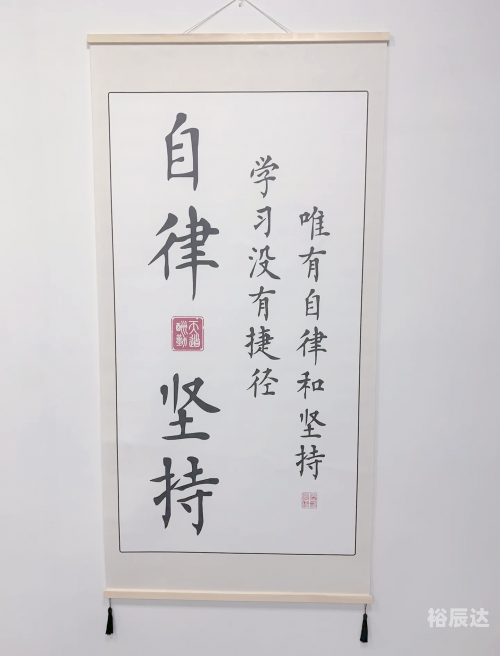 自律
天道酬勤
坚持
学习没有捷径
唯有自律和坚持
裕辰达